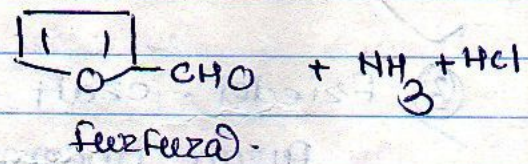 O CHO + NH3 + HCl
furfural.